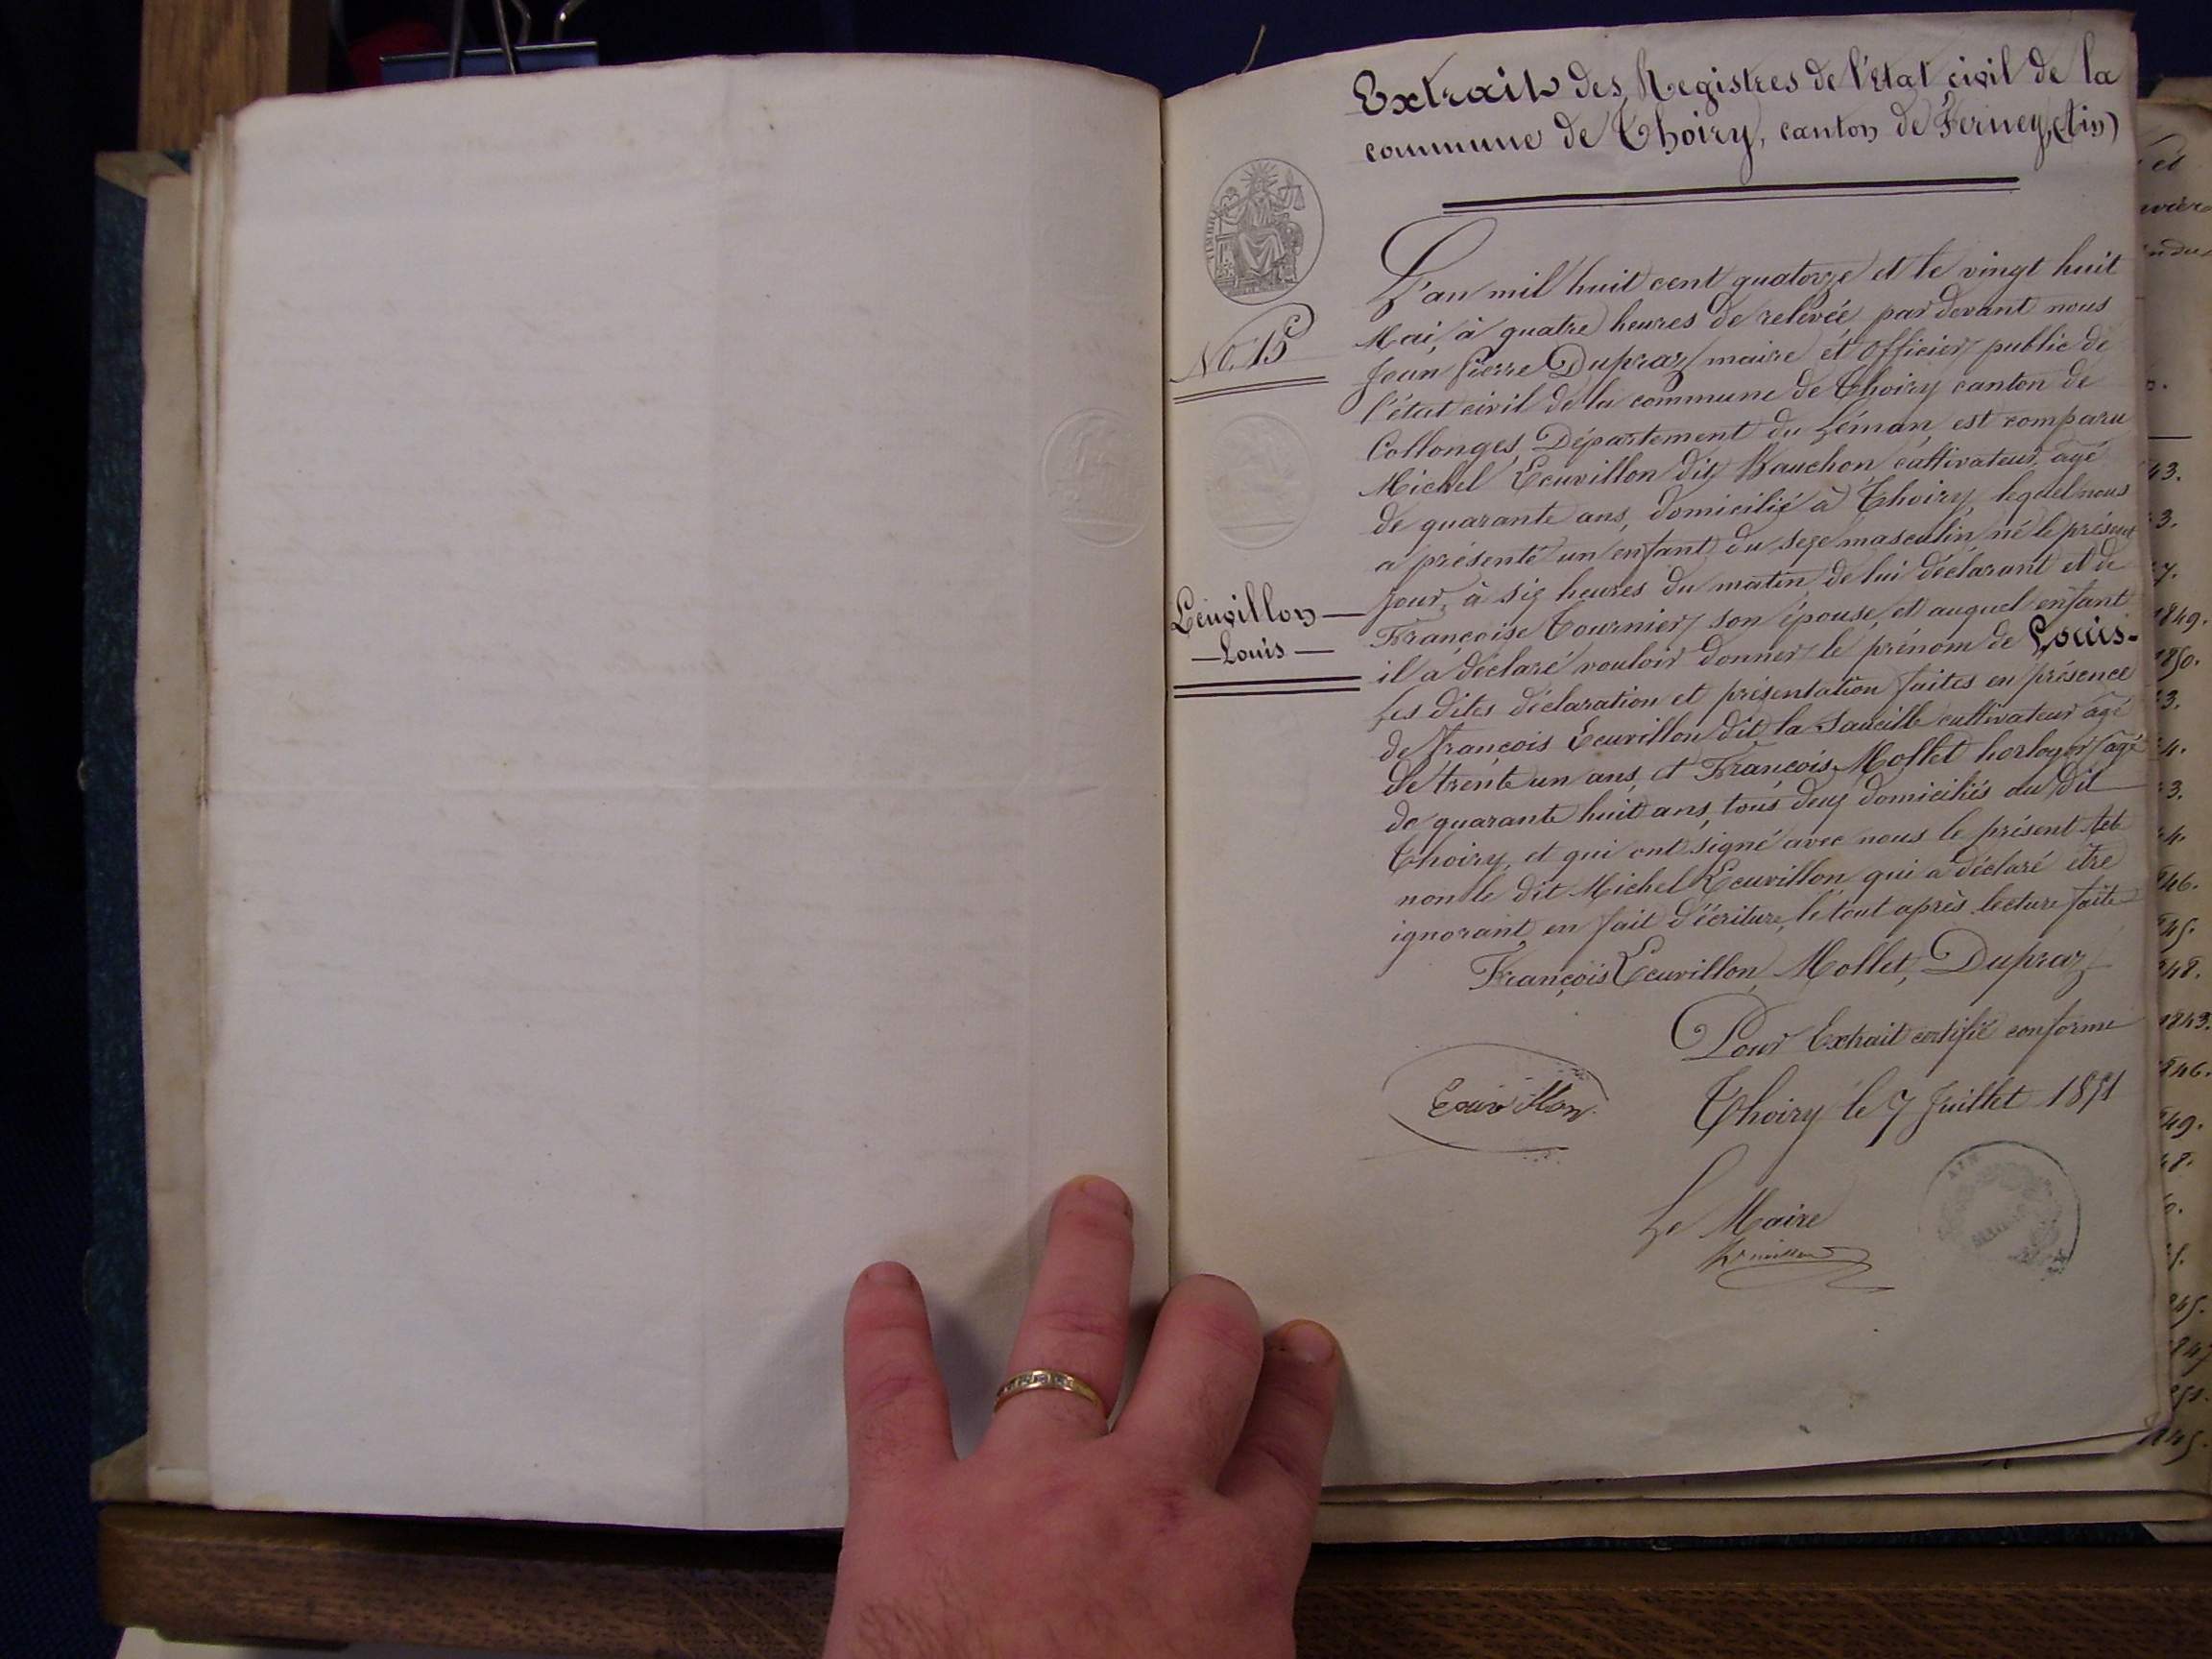 Extrait des Registres de l'Etat civil de la
commune de Thoiry, canton de Ferney, (Ain)
TIMBRE
No. 15
L'an mil huit cent quatorze et le vingt huit
Mai, à quatre heures de relevée, par devant nous
Jean Pierre Dupraz maire et officier public de
l'état civil de la commune de Thoiry canton de
Collonges, Département du Léman, est comparu
Michel Ecuvillon dit cultivateur, agé
de quarante ans, domicilié à Thoiry, lequel nous
a présenté un enfant du sexe masculin né le présent
jour, à six heures du matin, de lui déclarant et de
Françoise Tournier son épouse, et auquel enfant
il a déclaré vouloir donner le prénom de Louis-
Les dites déclaration et présentation faites en présence
de François Ecuvillon dit la cultivateur agé
de trente un ans, et François Mollet horloger agé
de quarante huit ans, tous deux domiciliés au dit
Thoiry, et qui ont signé avec nous le présent acte
non le dit Michel Ecuvillon, qui a déclaré être
ignorant en fait d'écriture, le tout après lecture faite
Ecuvillon
Louis
François Ecuvillon, Mollet, Dupraz
Pour Extrait certifié conforme
Thoiry le 7 Juillet 1851
Ecuvillon
Le Maire
AIN
et
43.
3.
7.
1849.
1850.
3.
4.
3.
4.
46.
45.
48.
1843.
46.
49.
48.